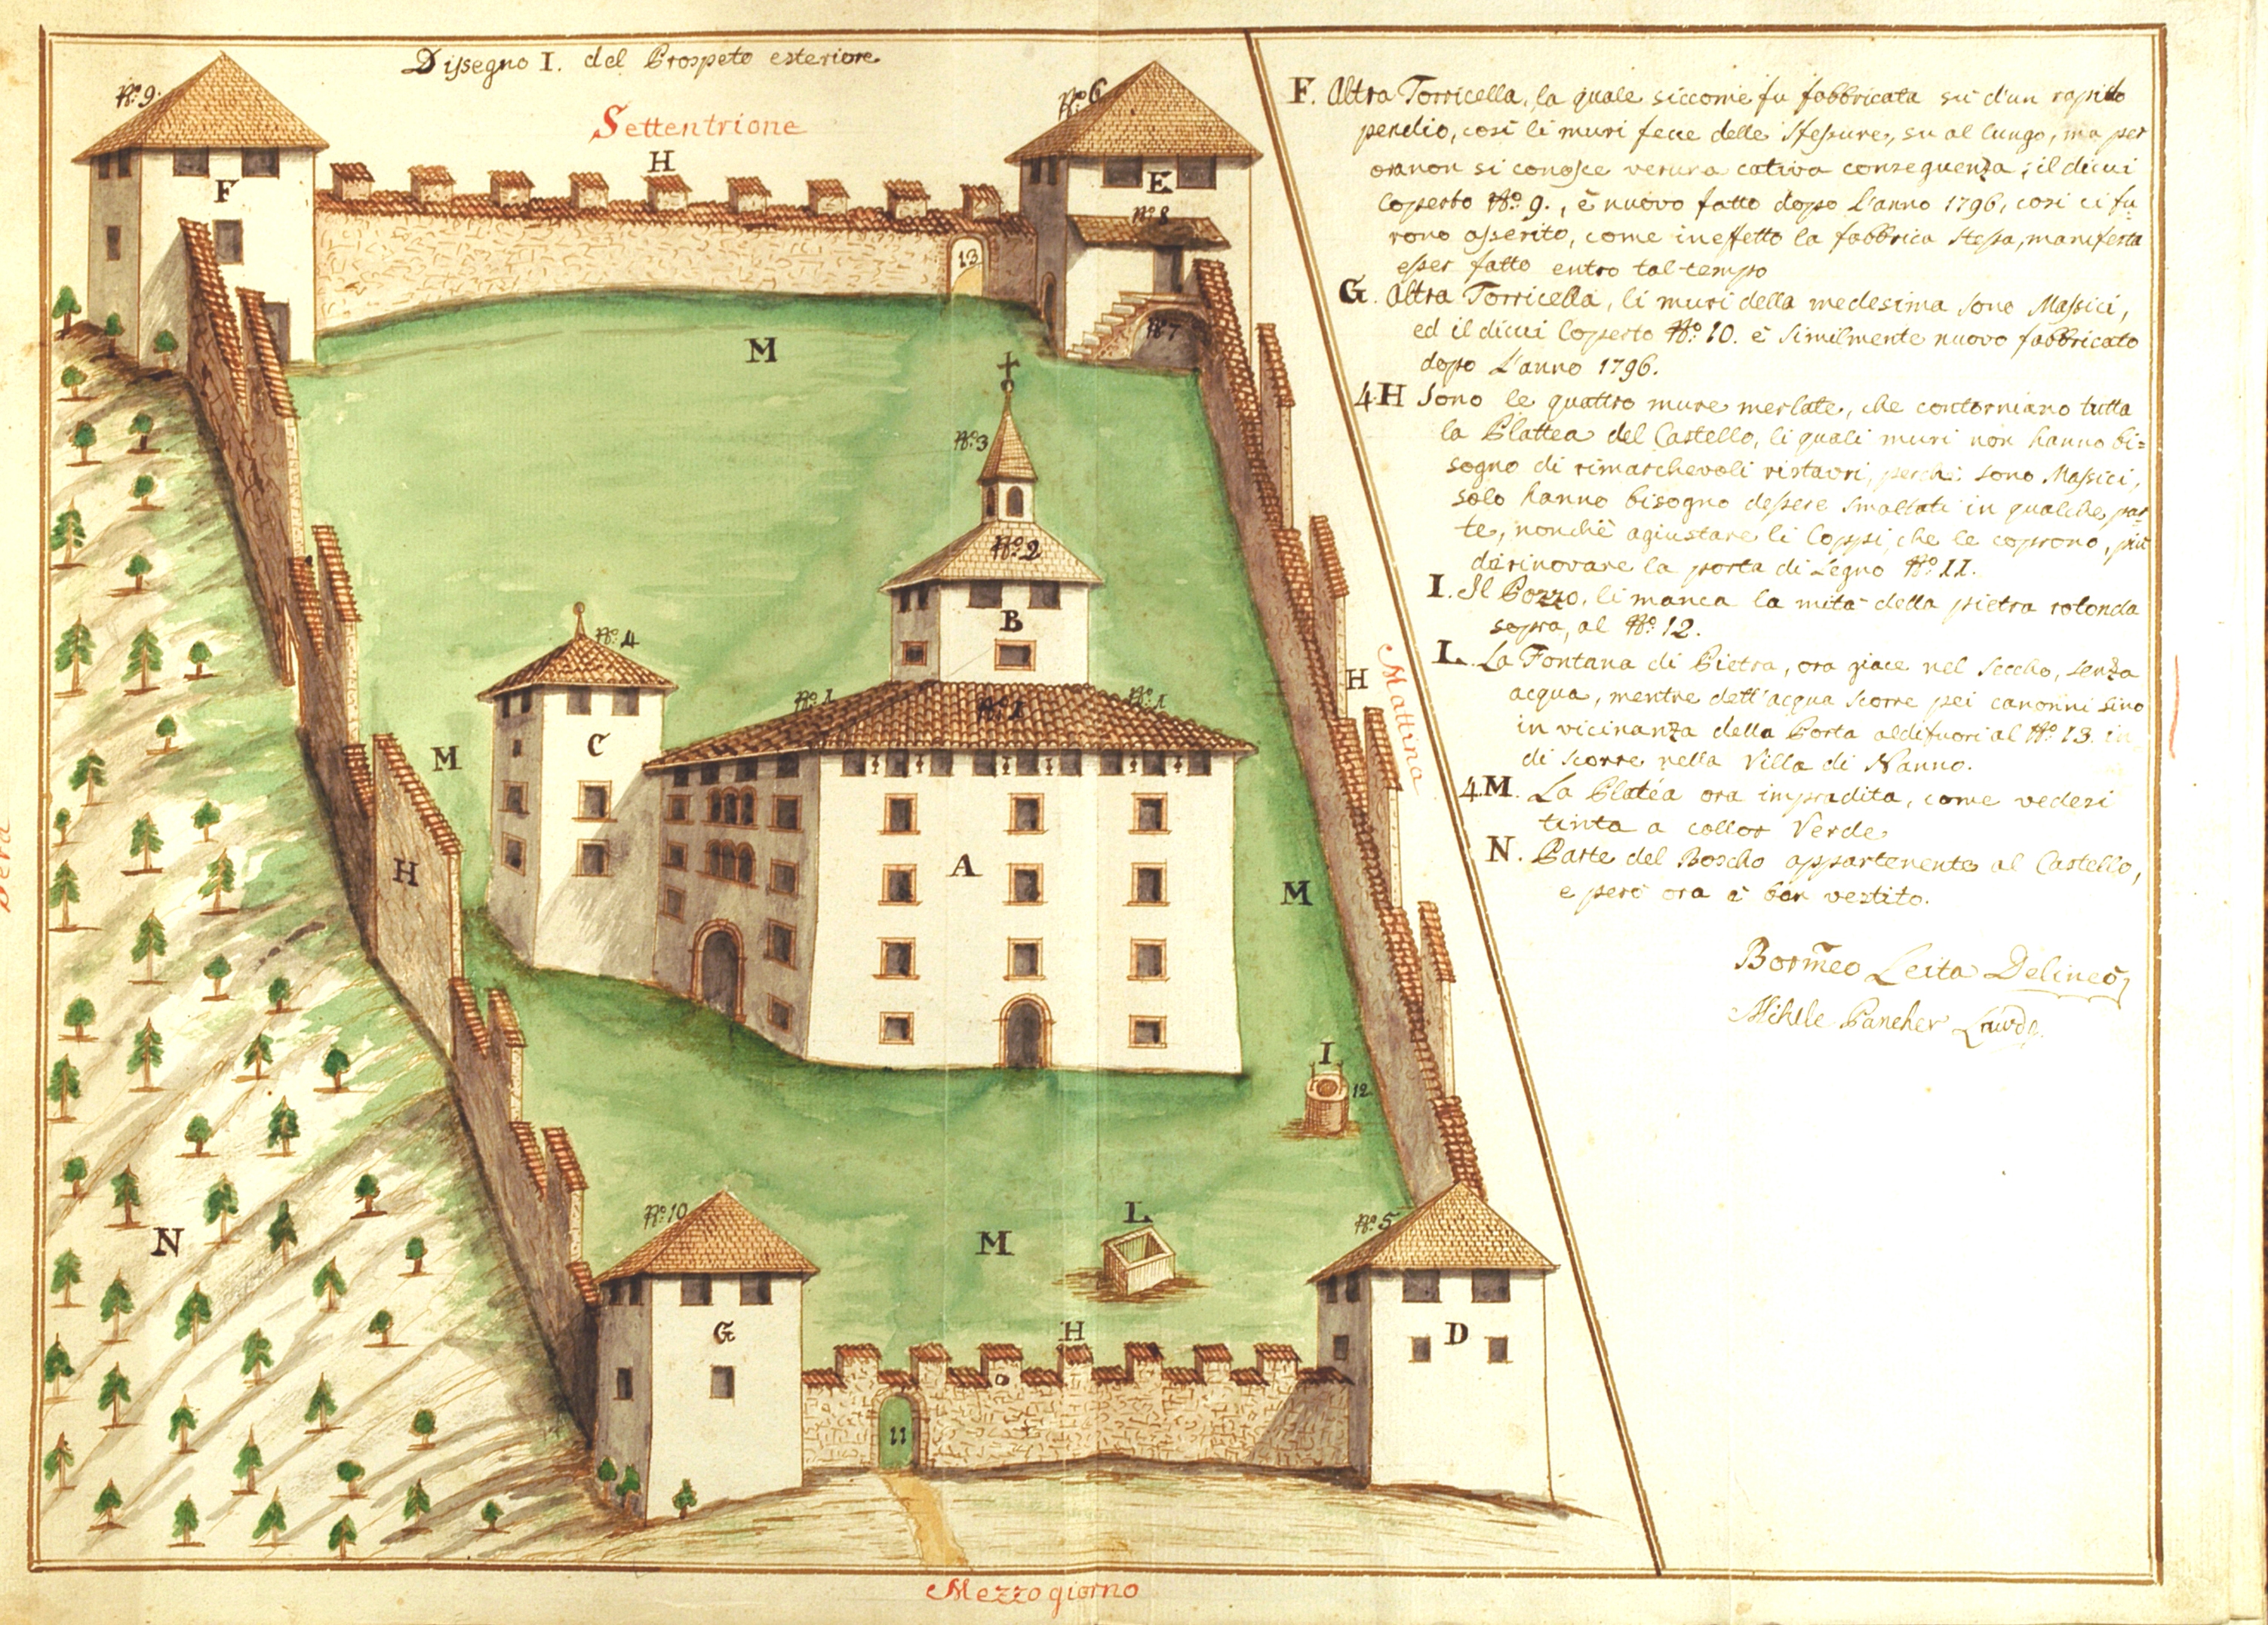 Dissegno I. del Prospeto esteriore
Settentrione
Nº 9.
Nº 6
H
F
E
Nº 8
13
Nº 7
M
Nº 3
Nº 2
B
Nº 4
Nº 1
Nº 1
Nº 1
H
Mattina
C
M
A
H
M
Sera
I
12
N
Nº 10
L
M
Nº 5
G
H
D
11
Mezzogiorno
F. Altra Torricella, la quale siccome fu fabbricata sù d'un rapido
pendio, così li muri fece delle Fessure, su al lungo, ma per
ora non si conosce veruna cativa conseguenza; il di cui
Coperto Nº 9., è nuovo fatto dopo l'anno 1796, così ci fu=
rono asserito, come in effetto la fabbrica stessa, manifesta
esser fatto entro tal tempo
G. Altra Torricella, li muri della medesima sono Massici,
ed il di cui Coperto Nº 10. è similmente nuovo fabbricato
dopo l'anno 1796.
4.H Sono le quattro mure merlate, che contorniano tutta
la Plattea del Castello, li quali muri non hanno bi=
sogno di rimarchevoli ristauri, perchè sono Massici,
solo hanno bisogno d'essere smaltati in qualche par=
te, nonchè agiustare li Coppi, che le coprono, più
di rinovare la porta di Legno Nº 11.
I. Il Pozzo, li manca la mità della pietra rotonda
sopra, al Nº 12.
L. La Fontana di Pietra, ora giace nel Seccho, senza
acqua, mentre dell'acqua scorre pei canonni sino
in vicinanza della Porta aldifuori al Nº 13. in
di scorre nella Villa di Nanno.
4.M. La Platéa ora impradita, come vedesi
tinta a collor Verde
N. Parte del Boscho appartenente al Castello,
e però ora è ben vestito.
Borm̃eo Leita Delineò
Michele Pancher